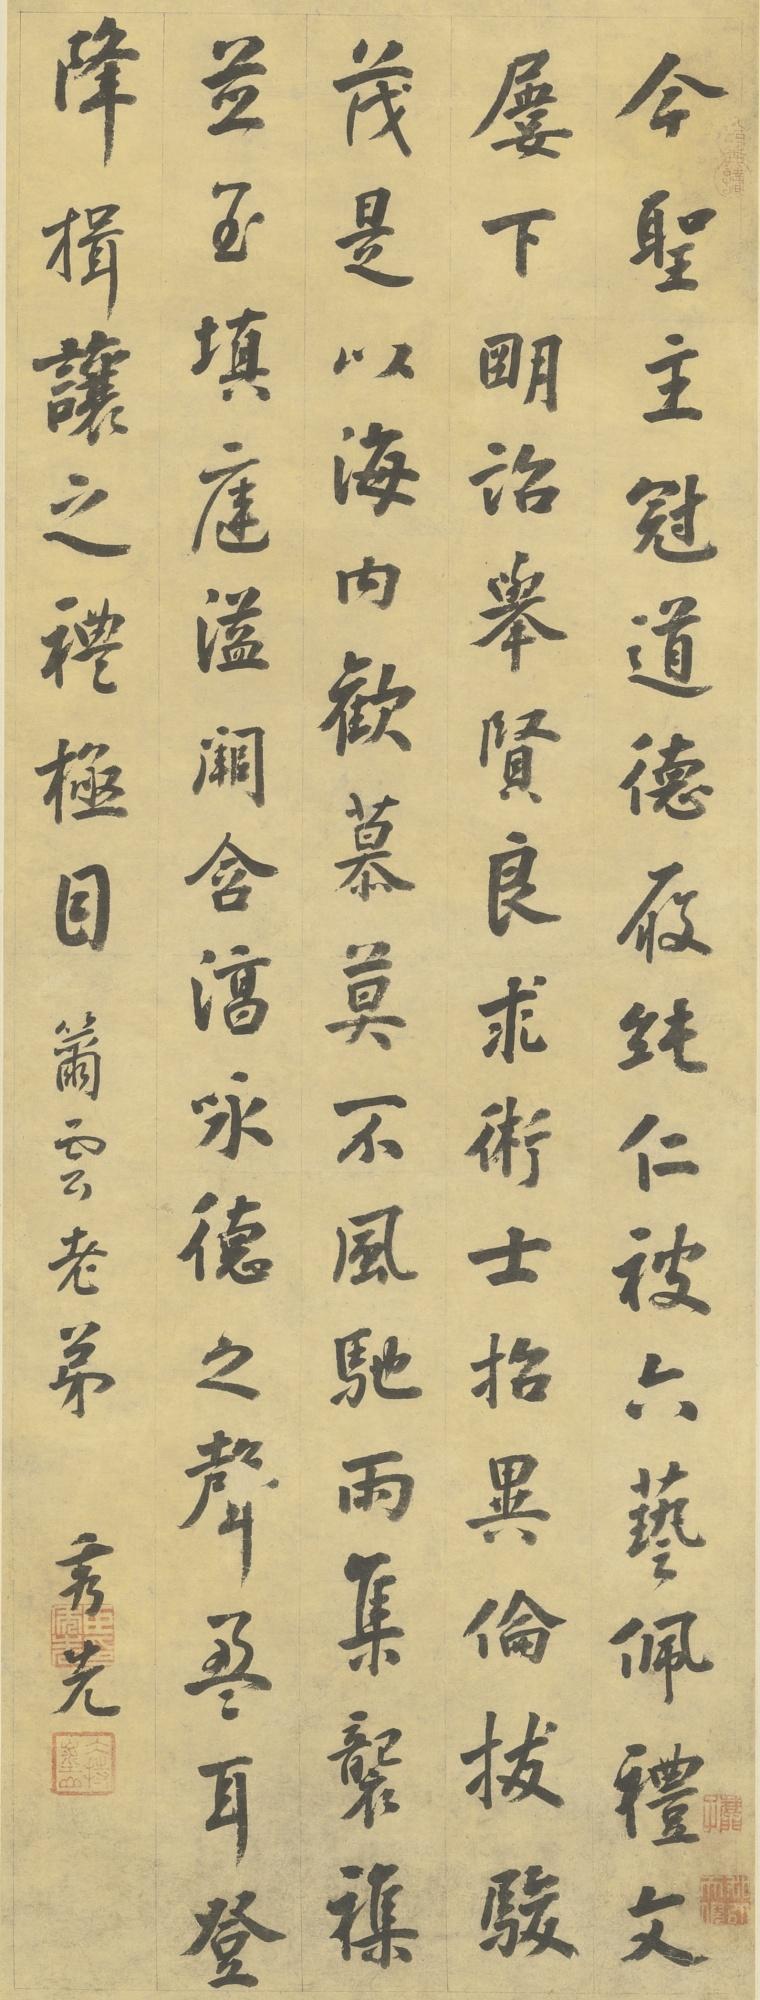 今聖主冠道德履純仁被六藝佩禮文
屢下朙詔舉賢良求術士招異倫拔駿
茂是以海內歡慕莫不風馳雨集襲襍
並至填庭溢闕含淳咏德之聲盈耳登
降揖讓之禮極目 籋雲老弟 秀先